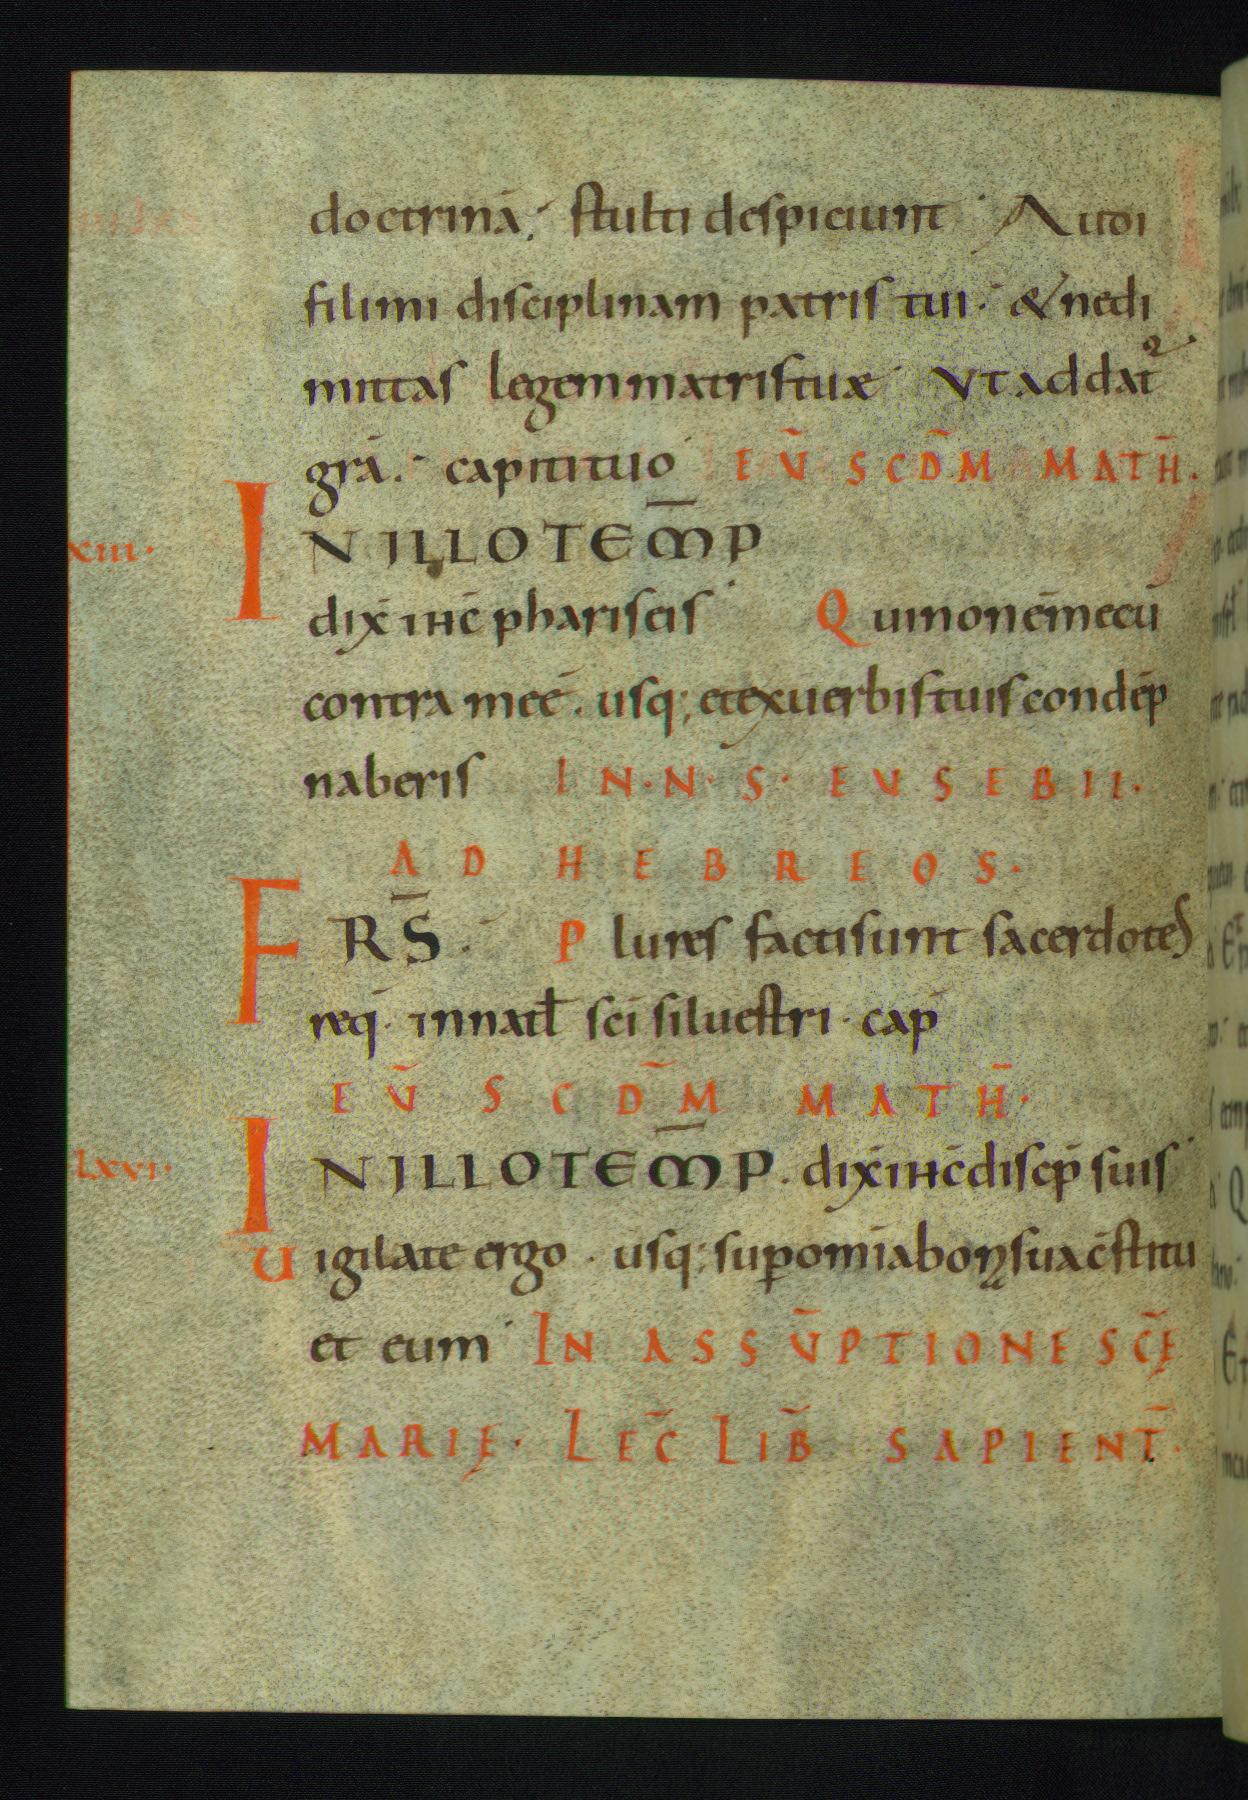 doctrinā. stulti despiciunt Audi
fili mi disciplinam patris tui. & ne di
mittas legem matris tuæ Vt addat᷑
grā. capiti tuo EṼ SCDM̃ MATH̃.
xiii. IN ILLO TEM̅P
dix̄ ihc̄ phariseis Qui non ē mecū
contra me ē. usq; et ex uerbis tuis condēp
naberis IN. N. S. EUSEBII.
AD HEBREOS.
FRS̅. Plures facti sunt sacerdotes
req̄. in natł sc̄i siluestri. cap̄
EṼ SCDM̃ MATH̃.
Lxvi. IN ILLO TEM̅P. dix̄ ihc̄ discip̄ suis
Uigilate ergo. usq; sup om̄ia bona sua c̄stitu
et eum IN ASSṼPTIONE SC̃Ę
MARIĘ. LEC̃ LIB̃ SAPIENT̃.